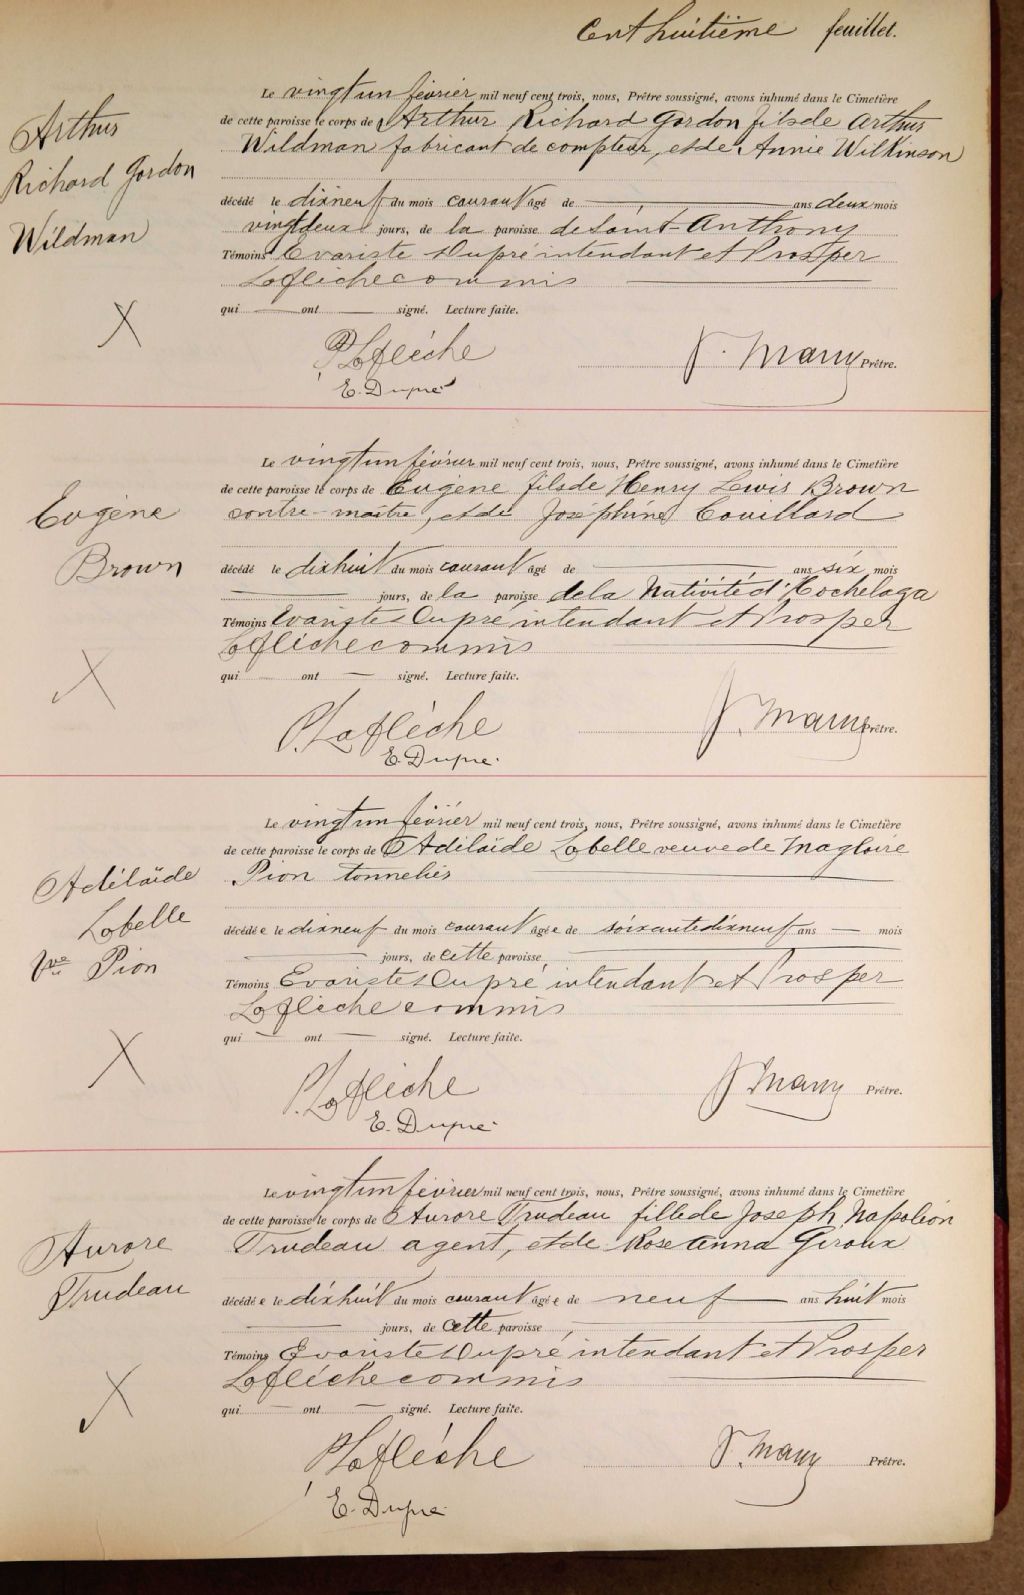 Cent huitième feuillet.
Arthur
Richard Gordon
Wildman
X
Le vingt un février mil neuf cent trois, nous, Prêtre soussigné, avons inhumé dans le Cimetière
de cette paroisse le corps de Arthur Richard Gordon fils de Arthur
Wildman fabricant de compteur, et de Annie Wilkinson
décédé le dixneuf du mois courant âgé de ans deux mois
vingtdeux jours, de la paroisse de Saint-Anthony
Témoins Evariste Dupré intendant et Prosper
Laflèche commis
qui ont signé. Lecture faite.
P. Laflèche
E. Dupré
Prêtre.
Eugène
Brown
X
Le vingt un février mil neuf cent trois, nous, Prêtre soussigné, avons inhumé dans le Cimetière
de cette paroisse le corps de Eugène fils de Henry Lewis Brown
contre-maître, et de Joséphine Couillard
décédé le dixhuit du mois courant âgé de ans six mois
jours, de la paroisse de la Nativité d'Hochelaga
Témoins Evariste Dupré intendant et Prosper
Laflèche commis
qui ont signé. Lecture faite.
P. Laflèche
E. Dupré
Prêtre.
Adélaïde
Labelle
Vve Pion
X
Le vingt un février mil neuf cent trois, nous, Prêtre soussigné, avons inhumé dans le Cimetière
de cette paroisse le corps de Adélaïde Labelle veuve de Magloire
Pion tonnelier
décédée le dixneuf du mois courant âgée de soixantedixneuf ans — mois
jours, de cette paroisse
Témoins Evariste Dupré intendant et Prosper
Laflèche commis
qui ont signé. Lecture faite.
P. Laflèche
E. Dupré
Prêtre.
Aurore
Trudeau
X
Le vingt un février mil neuf cent trois, nous, Prêtre soussigné, avons inhumé dans le Cimetière
de cette paroisse le corps de Aurore Trudeau fille de Joseph Napoléon
Trudeau agent, et de Rose Anna Giroux
décédée le dixhuit du mois courant âgée de neuf ans huit mois
jours, de cette paroisse
Témoins Evariste Dupré intendant et Prosper
Laflèche commis
qui ont signé. Lecture faite.
P. Laflèche
E. Dupré
Prêtre.